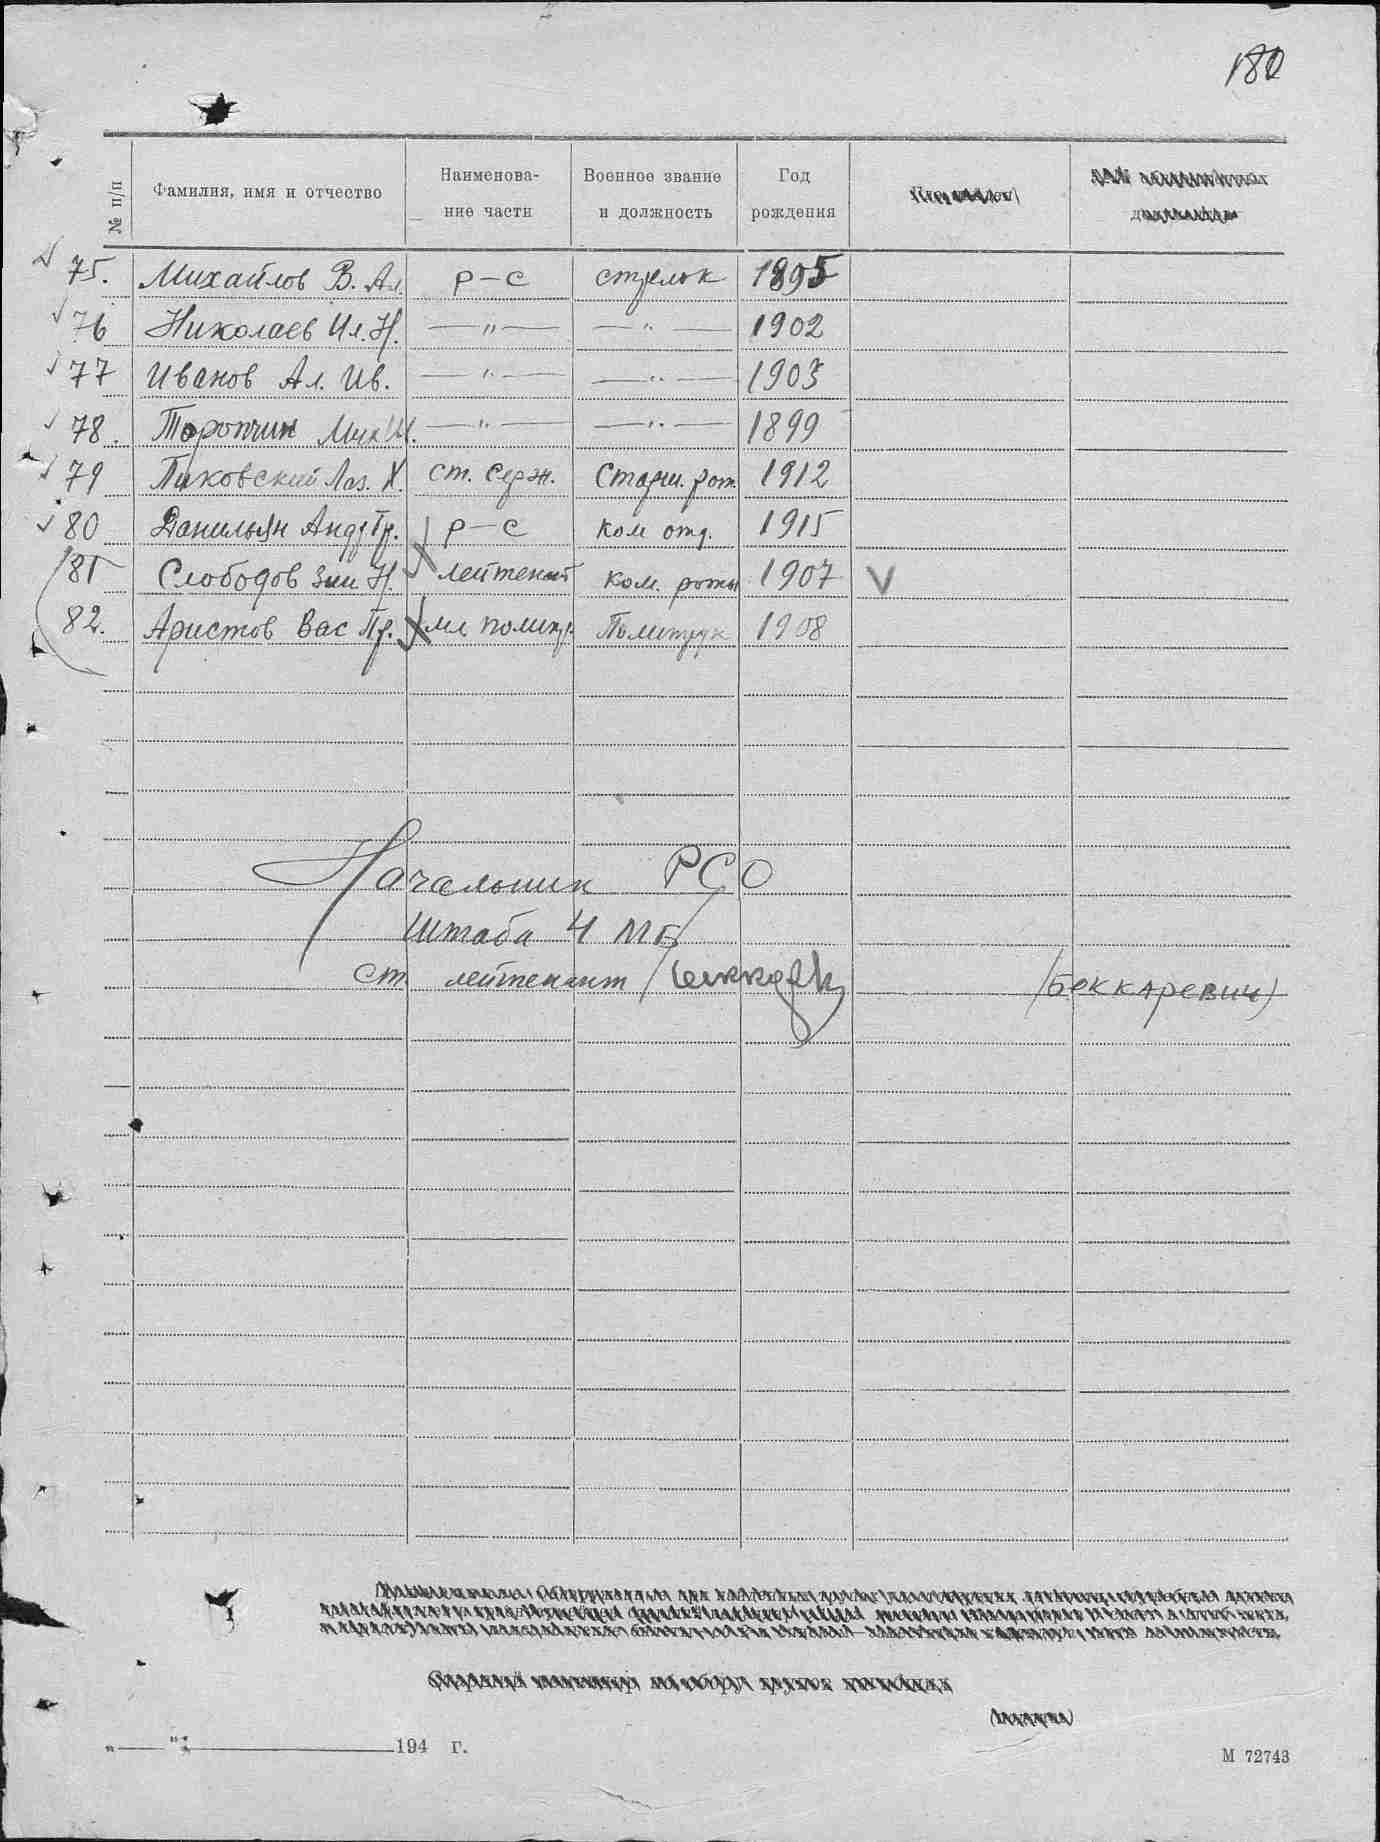 180
№ п/п
Фамилия, имя и отчество
Наименова-
ние части
Военное звание
и должность
Год
рождения
75. Михайлов В. Ал. р-с стрелок 1895
76 Николаев Ил. Н. —"— —"— 1902
77 Иванов Ал. Ив. —"— —"— 1903
78. Торопчин Мих —"— —"— 1899
79 Пиковский Лаз. Х. ст. серж. Старш. рот. 1912
80 Данильян Анд. Гр. р-с ком отд. 1915
81 Слободов Зин Н. лейтенант ком. роты 1907 V
82. Аристов Вас Пр. мл политр. Политрук 1908
Начальник РСО
Штаба 4 МБ
ст. лейтенант (Беккаревич)
„ " 194 г.
М 72743